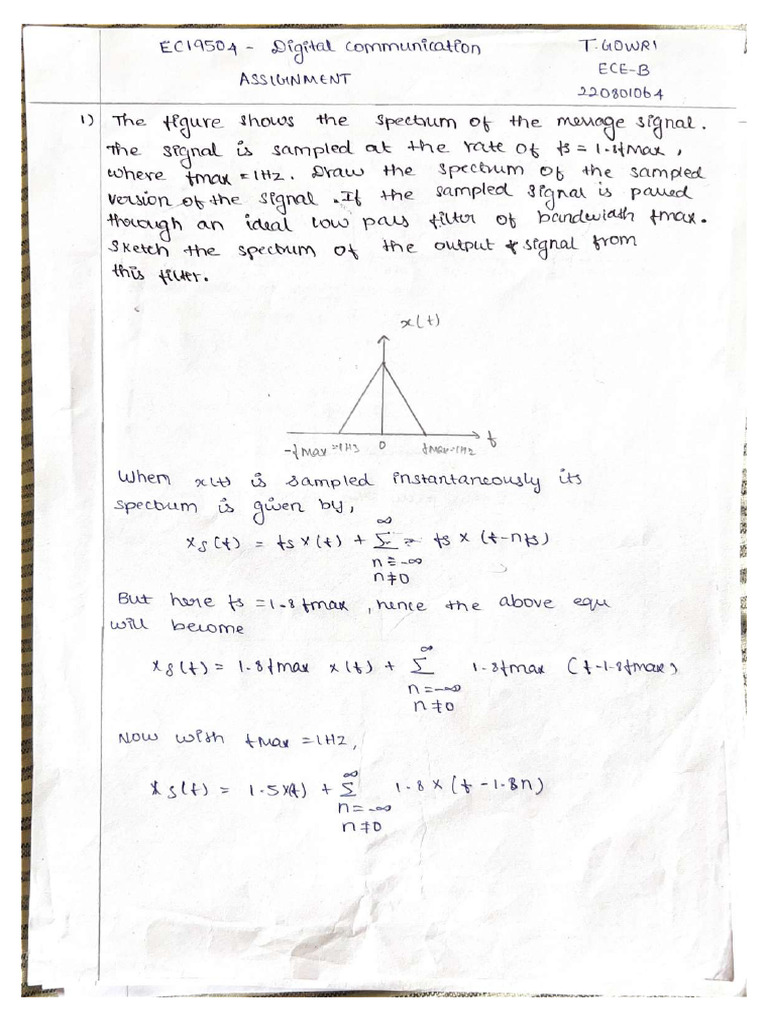 EC19504 - Digital communication
T. GOWRI
ECE-B
ASSIGNMENT
220801064
1) The figure shows the spectrum of the message signal.
The signal is sampled at the rate of fs = 1.8fmax,
where fmax = 1Hz. Draw the spectrum of the sampled
version of the signal. If the sampled signal is passed
through an ideal low pass filter of bandwidth fmax.
Sketch the spectrum of the output signal from
this filter.
x(t)
-fmax=1Hz 0 fmax=1Hz f
When x(t) is sampled instantaneously its
spectrum is given by,
xs(f) = fs x(f) + Σ fs x (f-nfs)
∞
n=-∞
n≠0
But here fs = 1.8fmax, hence the above equ
will become
xs(f) = 1.8fmax x(f) + Σ 1.8fmax (f-1.8fmax)
∞
n=-∞
n≠0
Now with fmax = 1Hz,
xs(f) = 1.5x(f) + Σ 1.8 x (f-1.8n)
∞
n=-∞
n≠0